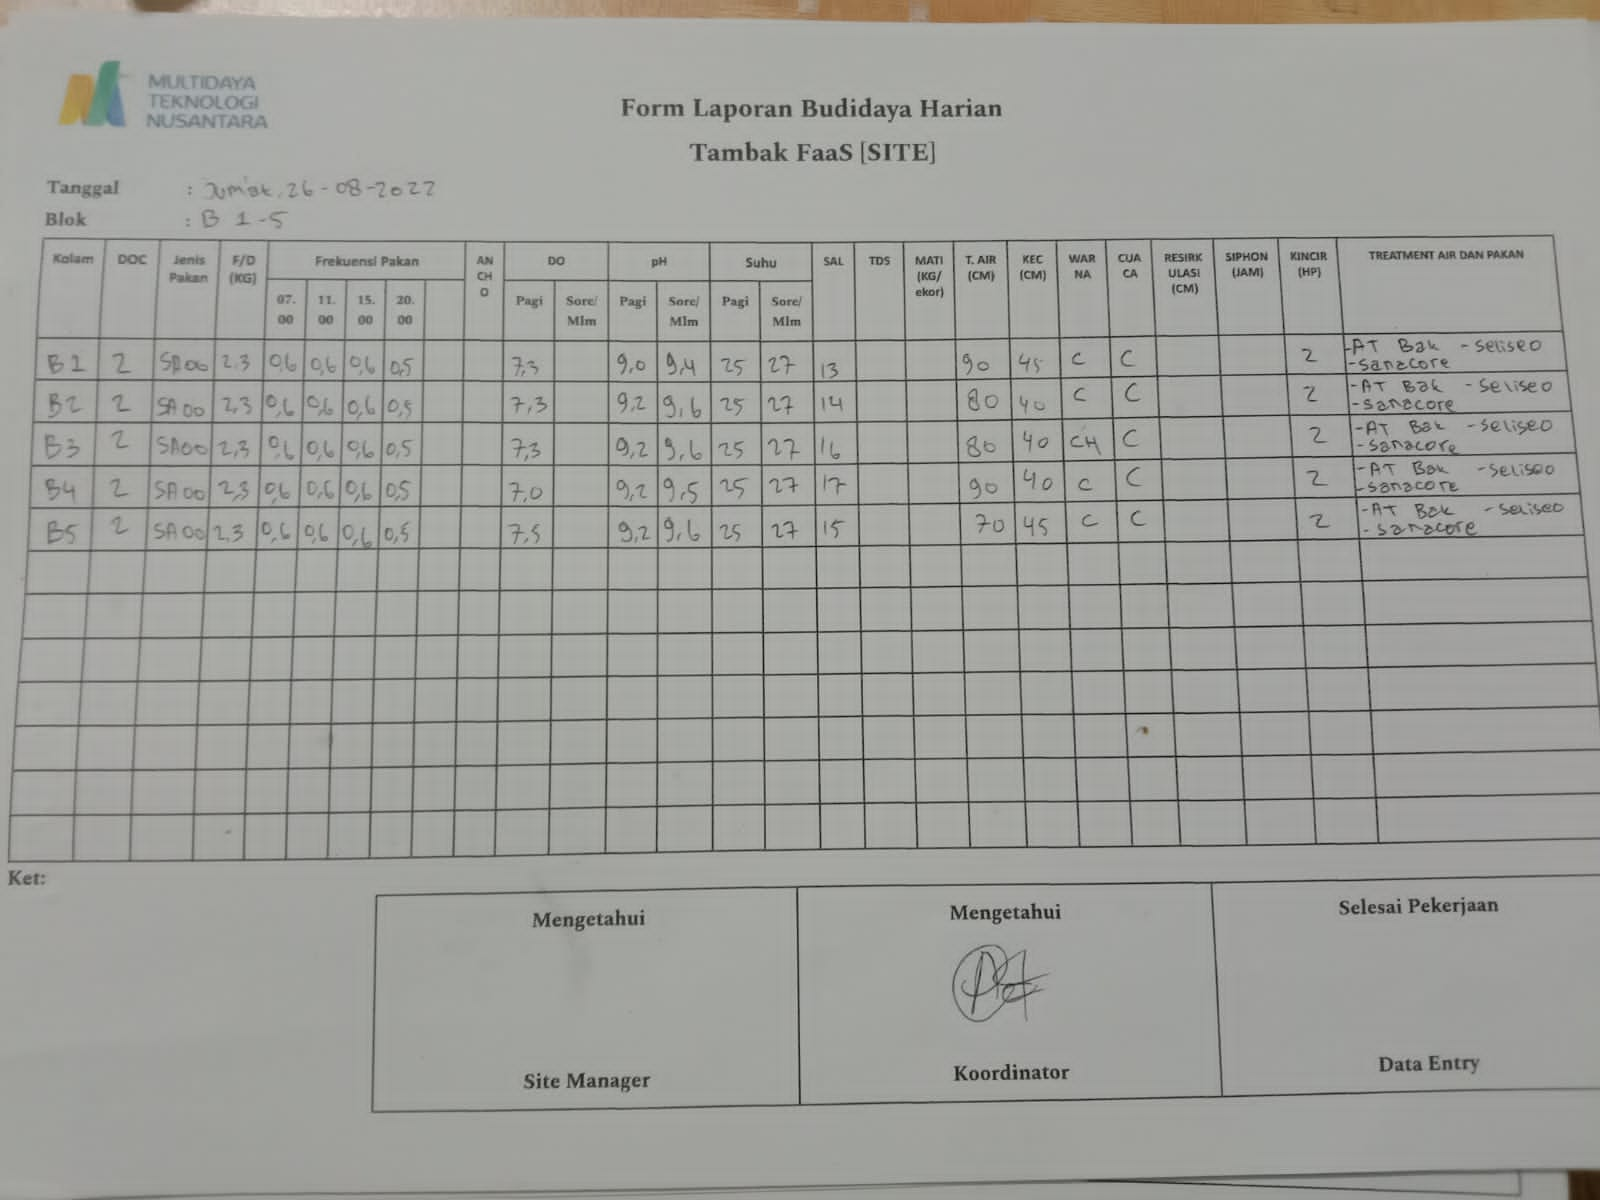 MULTIDAYA
TEKNOLOGI
NUSANTARA
Form Laporan Budidaya Harian
Tambak FaaS [SITE]
Tanggal : Jum'at, 26-08-2022
Blok : B 1-5
Kolam DOC Jenis Pakan F/D (KG) Frekuensi Pakan AN CH O DO pH Suhu SAL TDS MATI (KG/ ekor) T. AIR (CM) KEC (CM) WAR NA CUA CA RESIRK ULASI (CM) SIPHON (JAM) KINCIR (HP) TREATMENT AIR DAN PAKAN
07. 00 11. 00 15. 00 20. 00 Pagi Sore/ Mlm Pagi Sore/ Mlm Pagi Sore/ Mlm
B1 2 SA00 2,3 0,6 0,6 0,6 0,5 7,3 9,0 9,4 25 27 13 90 45 C C 2 -AT Bak -seliseo
-sanacore
B2 2 SA00 2,3 0,6 0,6 0,6 0,5 7,3 9,2 9,6 25 27 14 80 40 C C 2 -AT Bak -seliseo
-sanacore
B3 2 SA00 2,3 0,6 0,6 0,6 0,5 7,3 9,2 9,6 25 27 16 80 40 CH C 2 -AT Bak -seliseo
-sanacore
B4 2 SA00 2,3 0,6 0,6 0,6 0,5 7,0 9,2 9,5 25 27 17 90 40 C C 2 -AT Bak -seliseo
-sanacore
B5 2 SA00 2,3 0,6 0,6 0,6 0,5 7,5 9,2 9,6 25 27 15 70 45 C C 2 -AT Bak -seliseo
-sanacore
Ket:
Mengetahui Mengetahui Selesai Pekerjaan
Site Manager Koordinator Data Entry